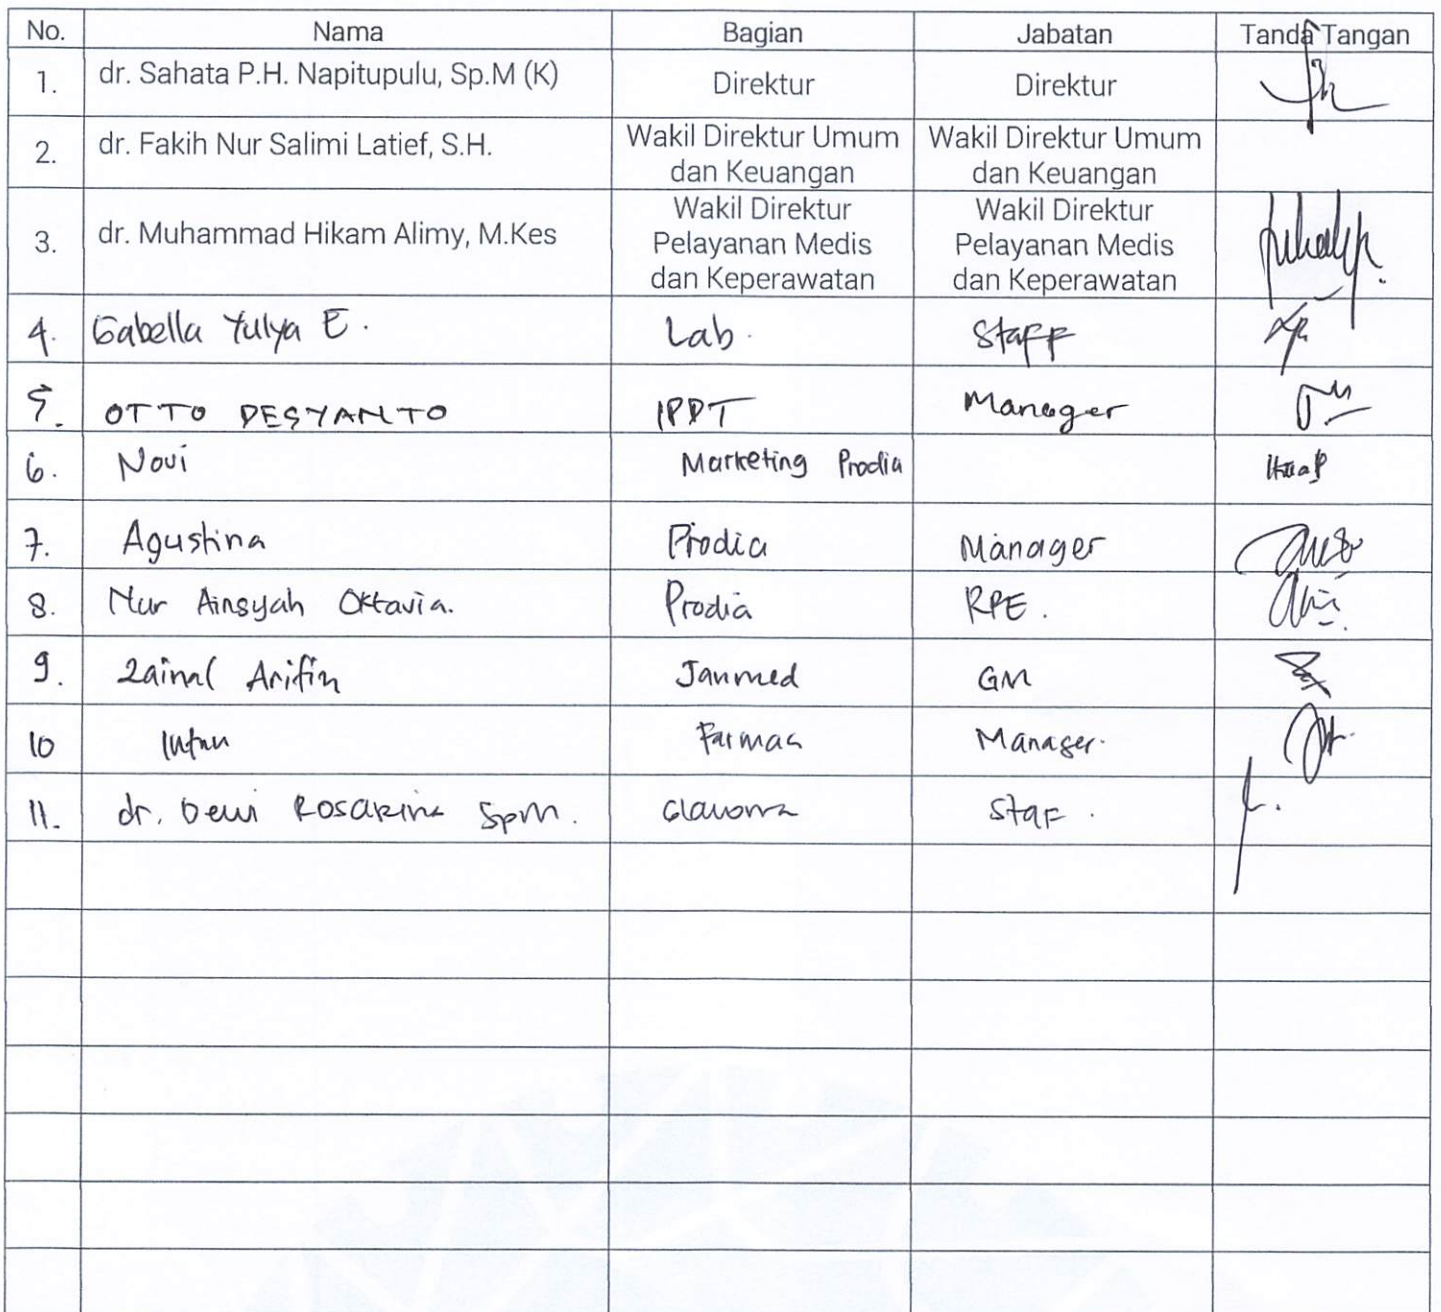 No. Nama Bagian Jabatan Tanda Tangan
1. dr. Sahata P.H. Napitupulu, Sp.M (K) Direktur Direktur
2. dr. Fakih Nur Salimi Latief, S.H. Wakil Direktur Umum Wakil Direktur Umum
dan Keuangan dan Keuangan
3. dr. Muhammad Hikam Alimy, M.Kes Wakil Direktur Wakil Direktur
Pelayanan Medis Pelayanan Medis
dan Keperawatan dan Keperawatan
4. Gabella Yulya E. Lab. Staff
5. OTTO DESYANTO IPDT Manager
6. Novi Marketing Prodia
7. Agustina Prodia Manager
8. Nur Ainsyah Oktavia. Prodia RPE.
9. Zainal Arifin Janmed GM
10 Intan Farmasi Manager.
11. dr. Dewi Rosarina SpM. Glaucoma Staf.